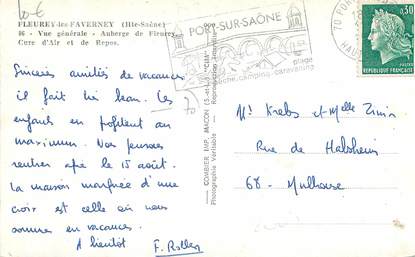 10 €
FLEUREY-les FAVERNEY (Hte-Saône)
86 - Vue générale - Auberge de Fleurey
Cure d'Air et de Repos.
Sincères amitiés de vacances
il fait très beau. Les
enfants en profitent au
maximum. Nous pensons
rentrer après le 15 août.
La maison marquée d'une
croix est celle où nous
sommes en vacances.
A bientôt F. Rolley
70
COMBIER IMP. MACON (S.-et-L.) "CIM"
Photographie Véritable - Reproduction Interdite
PORT-SUR-SAÔNE
plage
pêche.camping.caravaning
70
HAUTE
0,30
REPUBLIQUE FRANÇAISE
Mr Krebs et Melle
Rue de Habsheim
68 - Mulhouse